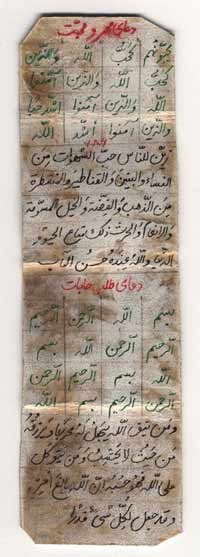 دعای مهر و محبت
یحبونهم کحب الله والذین
کحب الله والذین آمنوا
الله والذین آمنوا اشد حبا
والذین آمنوا اشد لله
زین للناس حب الشهوات من
النساء والبنین والقناطیر المقنطرة
من الذهب والفضة والخیل المسومة
والانعام والحرث ذلک متاع الحیوة
الدنیا والله عنده حسن المآب
دعای طلب حاجات
بسم الله الرحمن الرحیم
الله الرحمن الرحیم بسم
الرحمن الرحیم بسم الله
الرحیم بسم الله الرحمن
ومن یتق الله یجعل له مخرجا ویرزقه
من حیث لا یحتسب ومن یتوکل
علی الله فهو حسبه ان الله بالغ امره
وقد جعل لکل شیء قدرا